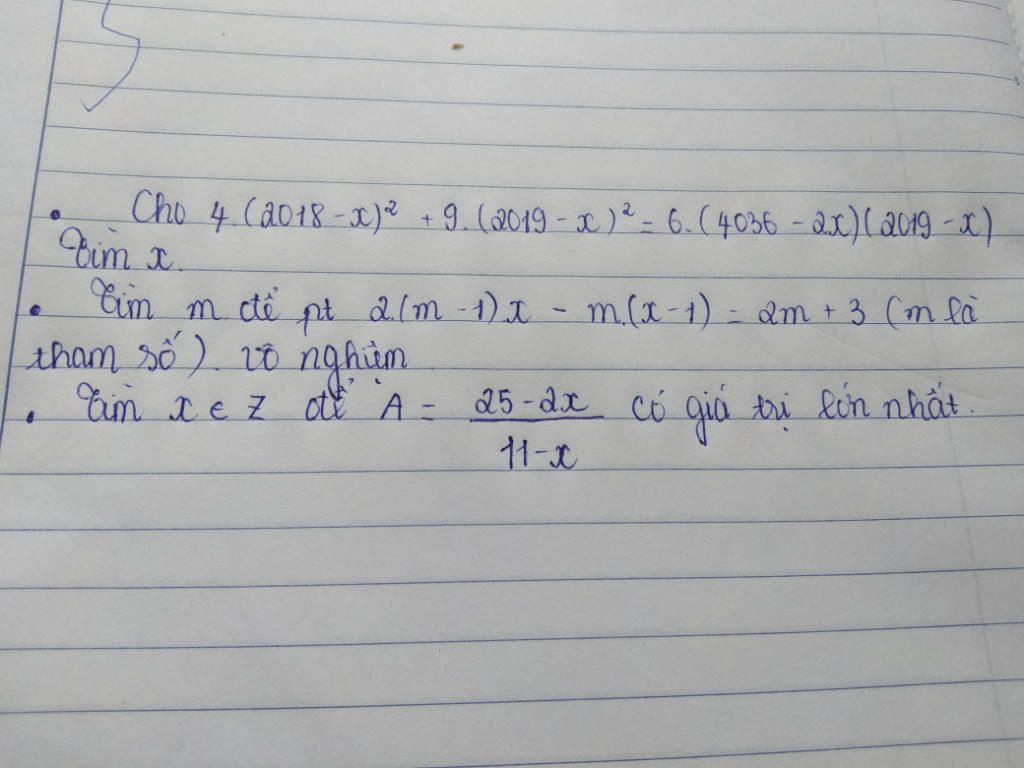 • Cho 4.(2018-x)² + 9.(2019-x)² = 6.(4036-2x)(2019-x)
Tìm x.
• Tìm m để pt 2(m-1)x - m(x-1) = 2m+3 (m là
tham số). vô nghiệm
• Tìm x ∈ Z để A = \frac{25-2x}{11-x} có giá trị lớn nhất.